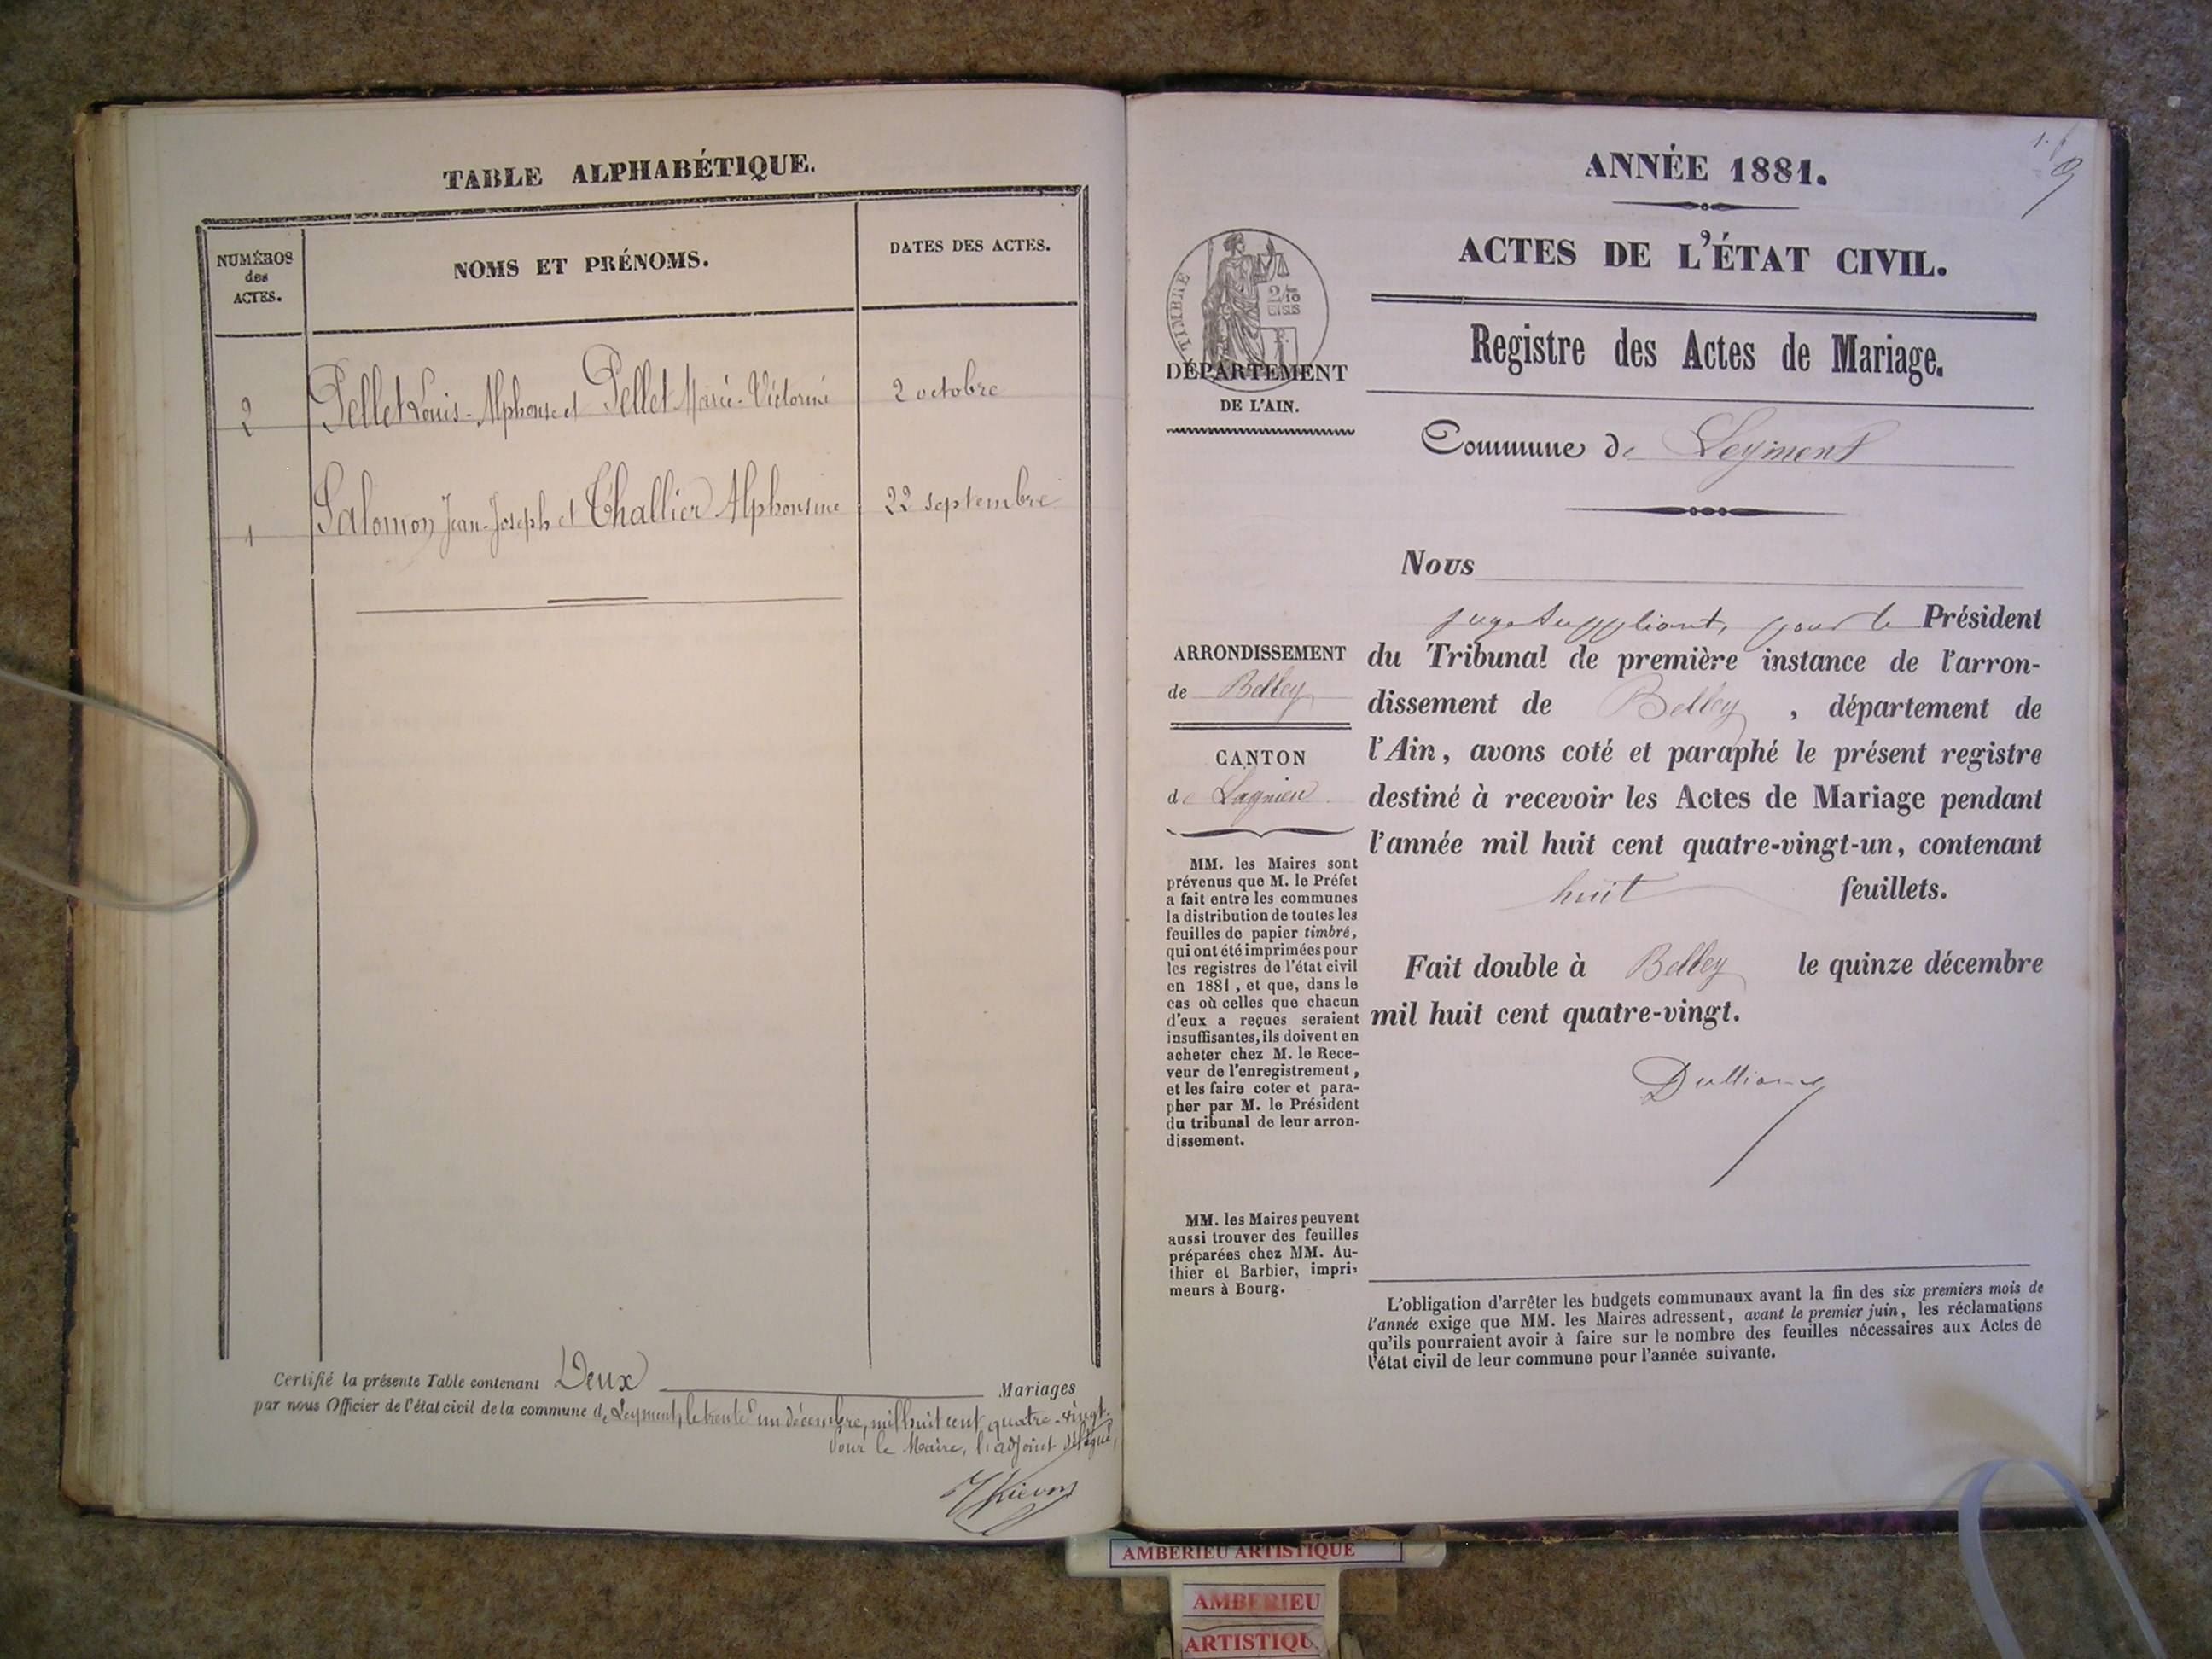 TABLE ALPHABÉTIQUE.
NUMÉROS
des
ACTES.
NOMS ET PRÉNOMS.
DATES DES ACTES.
2 Pellet Louis-Alphonse et Pellet Marie-Victorine 2 octobre
1 Salomon Jean-Joseph et Challier Alphonsine 22 septembre
Certifié la présente Table contenant Deux Mariages
par nous Officier de l'état civil de la commune de Leyment, le trente un décembre, mil huit cent quatre-vingt.
Pour le Maire, l'adjoint délégué,
1.
ANNÉE 1881.
ACTES DE L'ÉTAT CIVIL.
Registre des Actes de Mariage.
TIMBRE
2/10
EN SUS
DÉPARTEMENT
DE L'AIN.
Commune de Leyment
Nous
juge suppléant, pour le Président
du Tribunal de première instance de l'arron-
dissement de Belley, département de
l'Ain, avons coté et paraphé le présent registre
destiné à recevoir les Actes de Mariage pendant
l'année mil huit cent quatre-vingt-un, contenant
huit feuillets.
Fait double à Belley le quinze décembre
mil huit cent quatre-vingt.
ARRONDISSEMENT
de Belley
CANTON
de Lagnieu
MM. les Maires sont
prévenus que M. le Préfet
a fait entre les communes
la distribution de toutes les
feuilles de papier timbré,
qui ont été imprimées pour
les registres de l'état civil
en 1881, et que, dans le
cas où celles que chacun
d'eux a reçues seraient
insuffisantes, ils doivent en
acheter chez M. le Rece-
veur de l'enregistrement,
et les faire coter et para-
pher par M. le Président
du tribunal de leur arron-
dissement.
MM. les Maires peuvent
aussi trouver des feuilles
préparées chez MM. Au-
thier et Barbier, impri-
meurs à Bourg.
L'obligation d'arrêter les budgets communaux avant la fin des six premiers mois de
l'année exige que MM. les Maires adressent, avant le premier juin, les réclamations
qu'ils pourraient avoir à faire sur le nombre des feuilles nécessaires aux Actes de
l'état civil de leur commune pour l'année suivante.
AMBERIEU ARTISTIQUE
AMBERIEU
ARTISTIQU